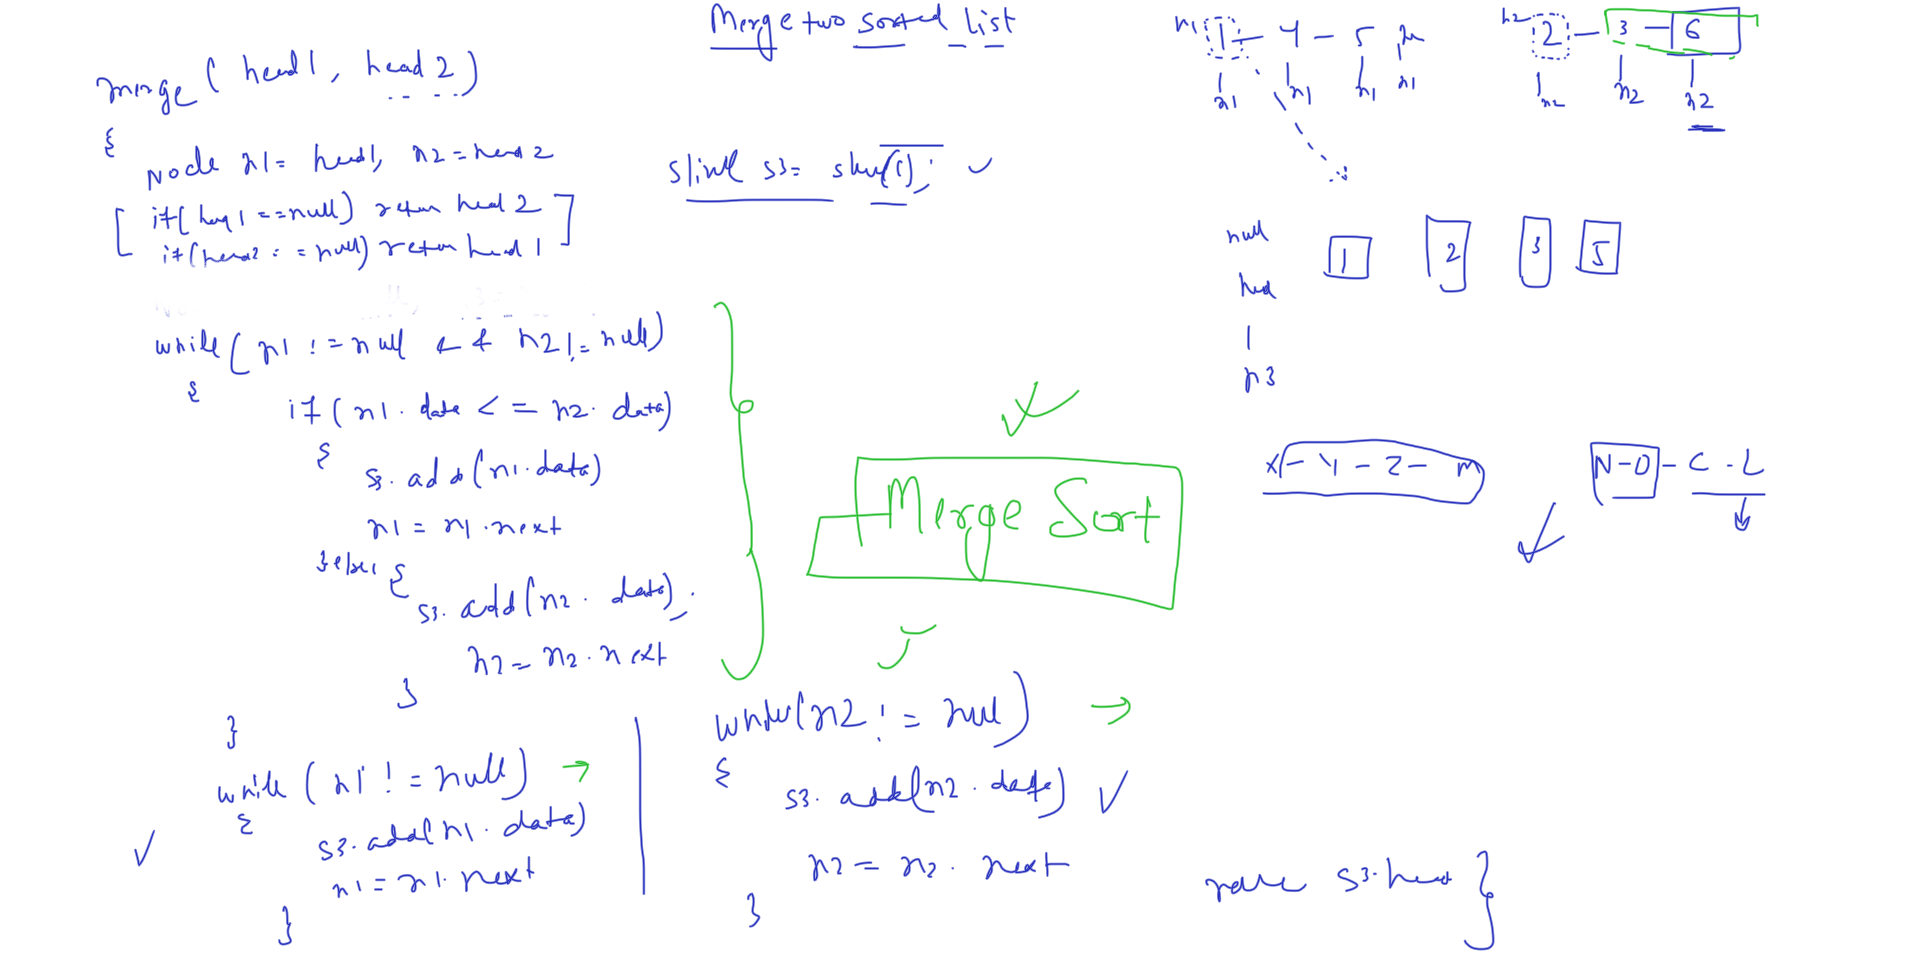 Merge two sorted list
merge( head1, head2)
{
Node n1= head1, n2=head2
if(head1==null) return head2
if(head2==null) return head1
while( n1 != null && n2!=null)
{
if( n1.data <= n2.data)
{
s3.add(n1.data)
n1 = n1.next
}else {
s3.add(n2.data).
n2=n2.next
}
}
while( n1 != null) →
{
s3.add(n1.data)
n1=n1.next
}
s3=
Merge Sort
while(n2 != null) →
{
s3.add(n2.data)
n2=n2.next
}
s3.head }
h1 1 - 4 - 5
n1 n1 n1 n1
h2 2 - 3 - 6
n2 n2 n2
null 1 2 3 5
head
n3
X - Y - Z - M
N-O - C - L